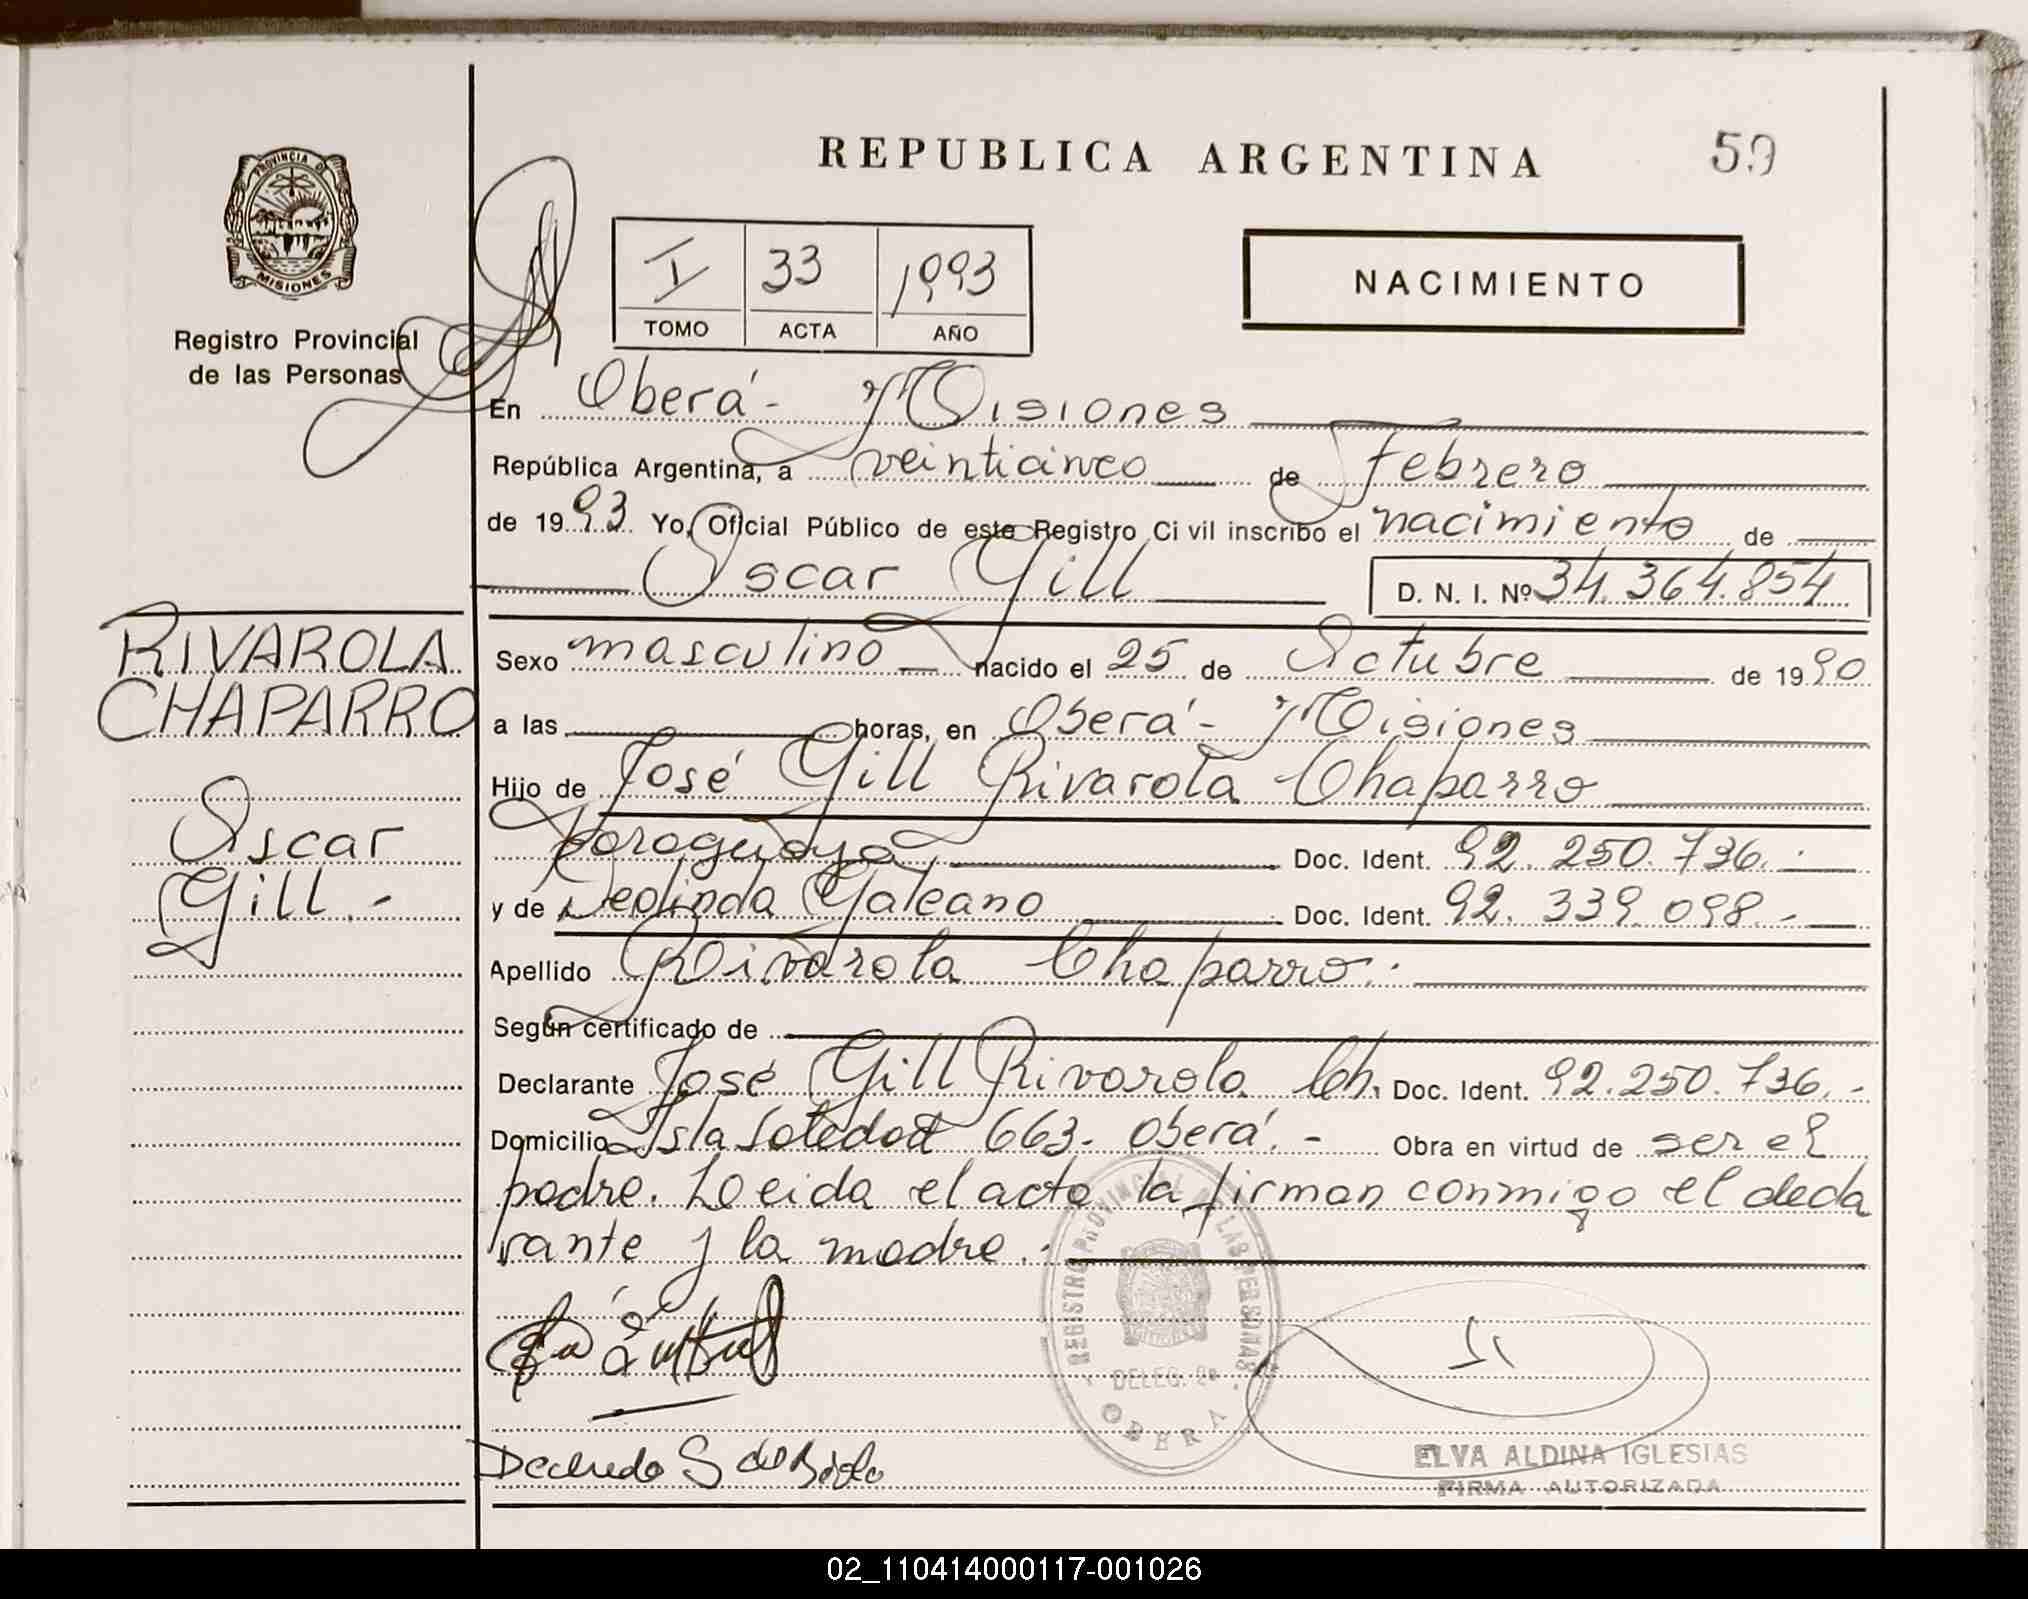 REPUBLICA ARGENTINA
59
PROVINCIA DE
MISIONES
Registro Provincial
de las Personas
I 33 1993
TOMO ACTA AÑO
NACIMIENTO
En Oberá - Misiones
República Argentina, a veinticinco de Febrero
de 1993 Yo, Oficial Público de este Registro Civil inscribo el nacimiento de
Oscar Gill D. N. I. Nº 34.364.854
RIVAROLA
CHAPARRO
Oscar
Gill.-
Sexo masculino nacido el 25 de Octubre de 1990
a las horas, en Oberá - Misiones
Hijo de José Gill Rivarola Chaparro
paraguaya Doc. Ident. 92.250.736.-
y de Deolinda Galeano Doc. Ident. 92.339.098.-
Apellido Rivarola Chaparro.-
Según certificado de
Declarante José Gill Rivarola Ch. Doc. Ident. 92.250.736.-
Domicilio Isla Soledad 663- Oberá.- Obra en virtud de ser el
padre. Leida el acta la firman conmigo el decla
rante y la madre.-
REGISTRO PROVINCIAL DE LAS PERSONAS
DELEG. 2a
OBERA
ELVA ALDINA IGLESIAS
FIRMA AUTORIZADA
02_110414000117-001026